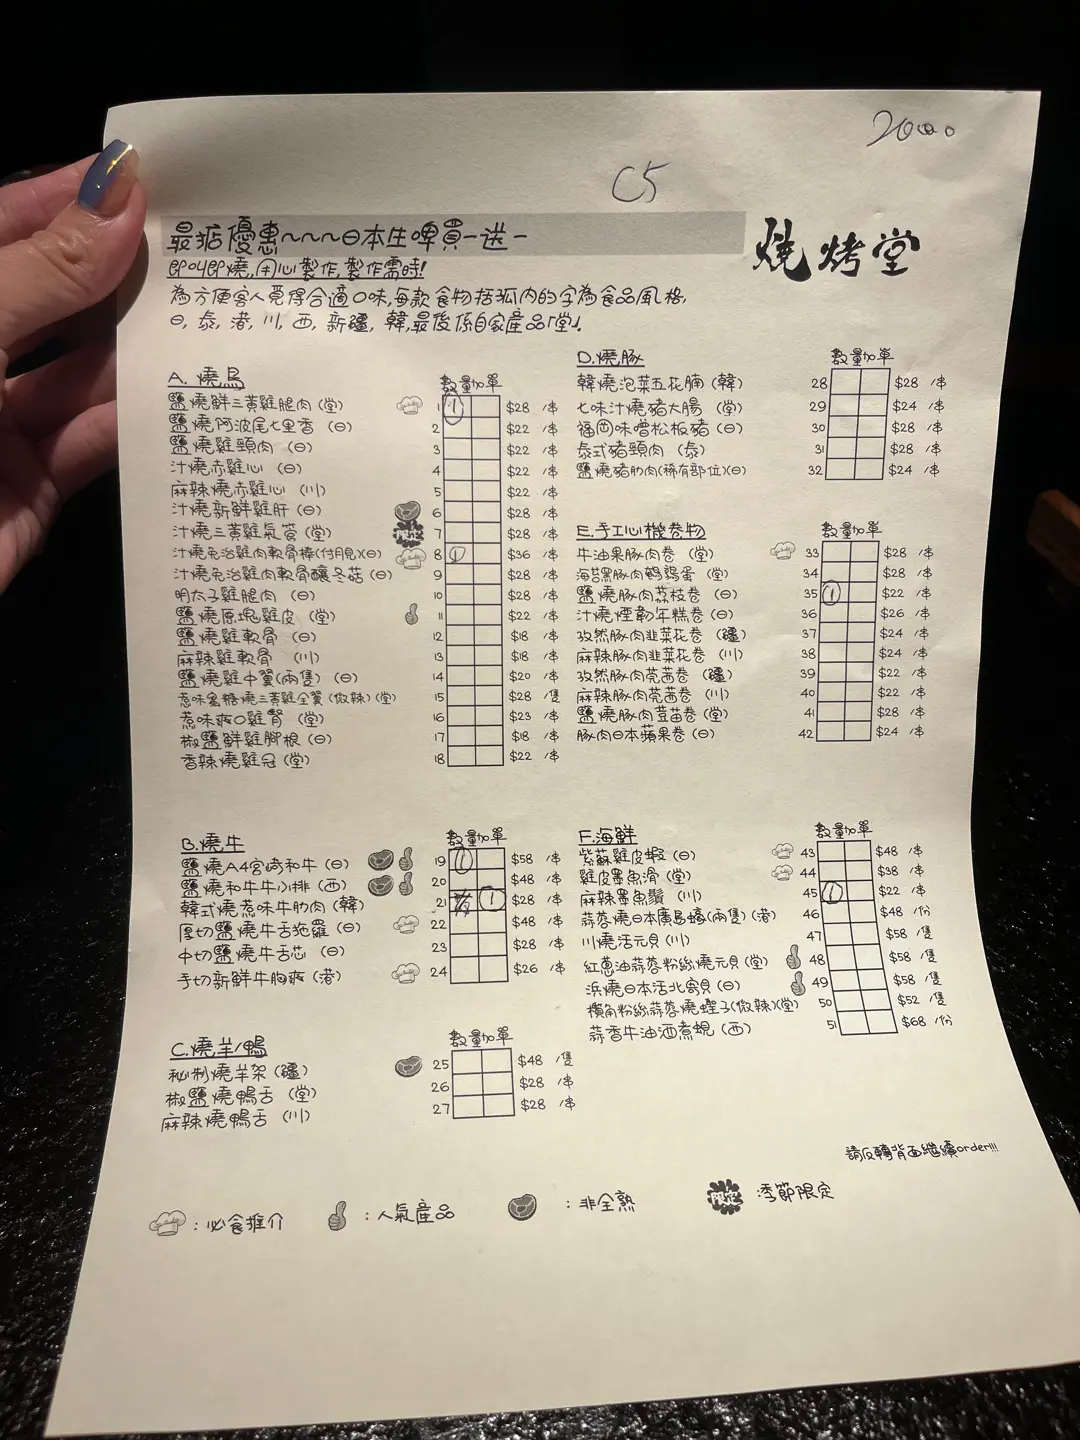 20:00
C5
最掂優惠~~~日本生啤買一送一
燒烤堂
即叫即燒,用心製作,製作需時!
為方便客人覓得合適口味,每款食物括弧内的字為食品風格,
日, 泰, 港, 川, 西, 新疆, 韓,最後係自家產品「堂」.
A. 燒鳥 數量 加單
鹽燒鮮三黃雞腿肉(堂) 1 ① $28 /串
鹽燒阿波尾七里香 (日) 2 $22 /串
鹽燒雞頸肉 (日) 3 $22 /串
汁燒赤雞心 (日) 4 $22 /串
麻辣燒赤雞心 (川) 5 $22 /串
汁燒新鮮雞肝 (日) 6 $28 /串
汁燒三黃雞氣管 (堂) 限定 7 $28 /串
汁燒免治雞肉軟骨棒(付月見)(日) 8 ① $36 /串
汁燒免治雞肉軟骨釀冬菇 (日) 9 $28 /串
明太子雞腿肉 (日) 10 $28 /串
鹽燒原塊雞皮 (堂) 11 $22 /串
鹽燒雞軟骨 (日) 12 $18 /串
麻辣雞軟骨 (川) 13 $18 /串
鹽燒雞中翼(兩隻) (日) 14 $20 /串
惹味蜜糖燒三黃雞全翼 (微辣) (堂) 15 $28 /隻
惹味爽口雞腎 (堂) 16 $23 /串
椒鹽鮮雞腳根 (日) 17 $18 /串
香辣燒雞冠 (堂) 18 $22 /串
B.燒牛 數量 加單
鹽燒A4宮崎和牛 (日) 19 ① $58 /串
鹽燒和牛牛小排 (西) 20 $48 /串
韓式燒惹味牛肋肉 (韓) 21 ① $28 /串
厚切鹽燒牛舌 (日) 22 $48 /串
中切鹽燒牛舌芯 (日) 23 $28 /串
手切新鮮牛胸爽 (港) 24 $26 /串
C.燒羊/鴨 數量 加單
秘制燒羊架 (疆) 25 $48 /隻
椒鹽燒鴨舌 (堂) 26 $28 /串
麻辣燒鴨舌 (川) 27 $28 /串
D.燒豚 數量 加單
韓燒泡菜五花腩 (韓) 28 $28 /串
七味汁燒豬大腸 (堂) 29 $24 /串
福岡味噌松板豬 (日) 30 $28 /串
泰式豬頸肉 (泰) 31 $28 /串
鹽燒豬肋肉(稀有部位)(日) 32 $24 /串
E.手工心機卷物 數量 加單
牛油果豚肉卷 (堂) 33 $28 /串
海苔黑豚肉鵪鶉蛋 (堂) 34 $28 /串
鹽燒豚肉荔枝卷 (日) 35 ① $22 /串
汁燒煙韌年糕卷 (日) 36 $26 /串
孜然豚肉韭菜花卷 (疆) 37 $24 /串
麻辣豚肉韭菜花卷 (川) 38 $24 /串
孜然豚肉芫茜卷 (疆) 39 $22 /串
麻辣豚肉芫茜卷 (川) 40 $22 /串
鹽燒豚肉荳苗卷 (堂) 41 $28 /串
豚肉日本蘋果卷 (日) 42 $24 /串
F.海鮮 數量 加單
紫蘇雞皮蝦 (日) 43 $48 /串
雞皮墨魚滑 (堂) 44 $38 /串
麻辣墨魚鬚 (川) 45 ① $22 /串
蒜蓉燒日本廣島蠔(兩隻) (港) 46 $48 /份
川燒活元貝 (川) 47 $58 /隻
紅蔥油蒜蓉粉絲燒元貝 (堂) 48 $58 /隻
浜燒日本活北寄貝 (日) 49 $58 /隻
欖角粉絲蒜蓉燒蟶子(微辣)(堂) 50 $52 /隻
蒜香牛油酒煮蜆 (西) 51 $68 /份
請反轉背面繼續order!!!
:必食推介 :人氣產品 :非全熟 限定 :季節限定